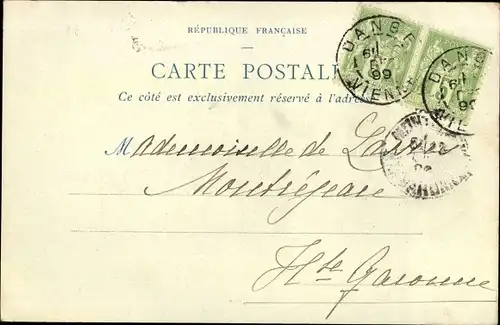 RÉPUBLIQUE FRANÇAISE
CARTE POSTALE
Ce côté est exclusivement réservé à l'adresse
DANGÉ
99
VIENNE
DANGÉ
99
VIENNE
Mademoiselle de
Montréjeau
Hte Garonne